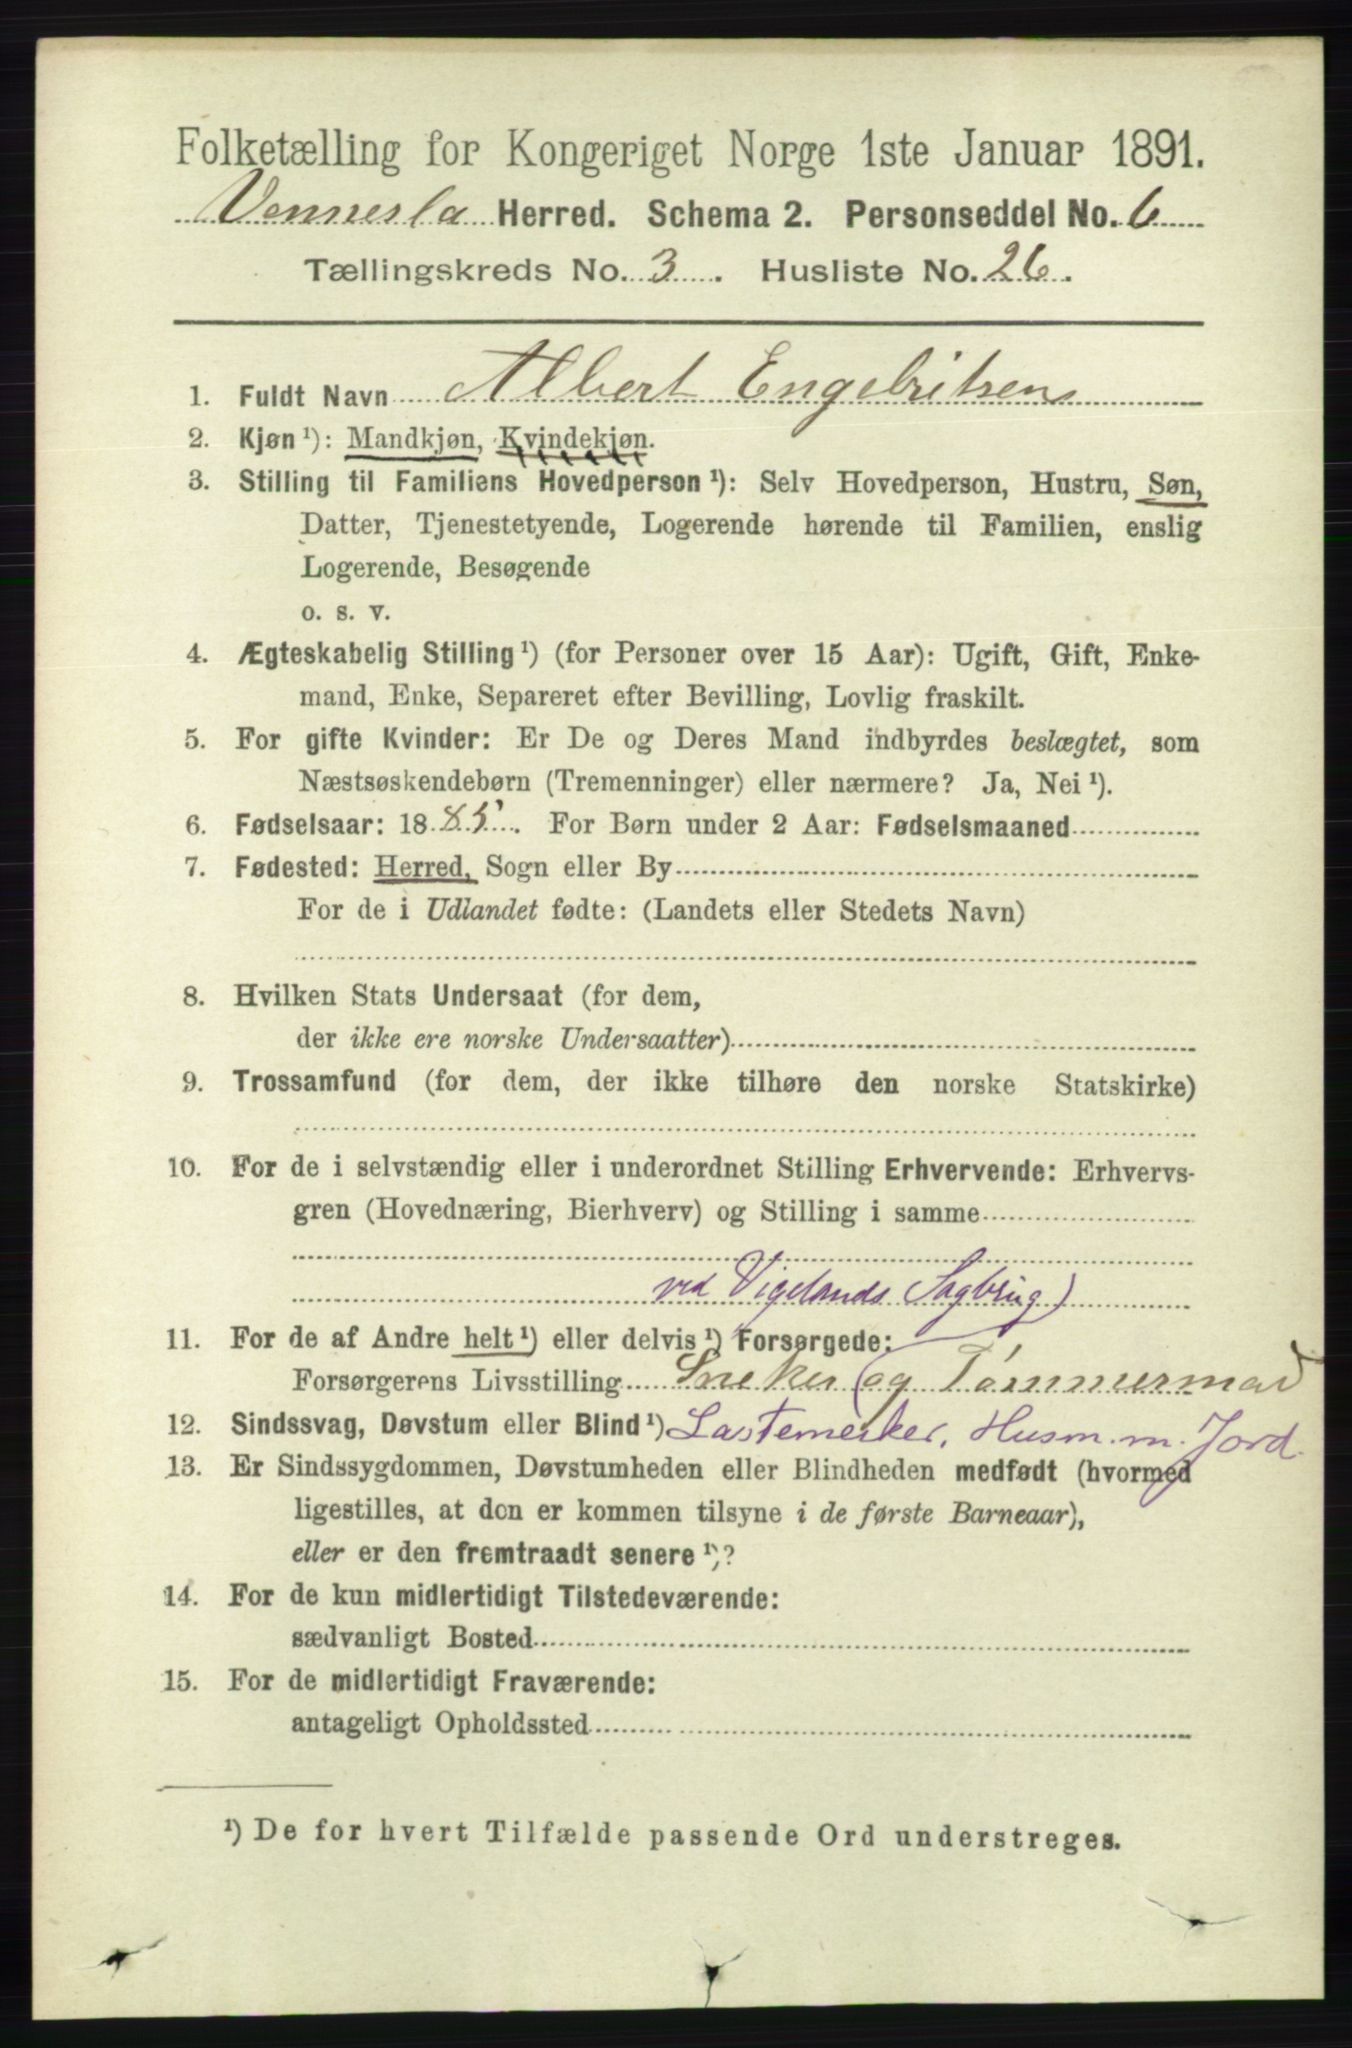 Folketælling for Kongeriget Norge 1ste Januar 1891.
Vennesla Herred. Schema 2. Personseddel No. 6
Tællingskreds No. 3. Husliste No. 26.
1. Fuldt Navn Albert Engebritsen
2. Kjøn ¹): Mandkjøn, Kvindekjøn.
3. Stilling til Familiens Hovedperson ¹): Selv Hovedperson, Hustru, Søn,
Datter, Tjenestetyende, Logerende hørende til Familien, enslig
Logerende, Besøgende
o. s. v.
4. Ægteskabelig Stilling ¹) (for Personer over 15 Aar): Ugift, Gift, Enke-
mand, Enke, Separeret efter Bevilling, Lovlig fraskilt.
5. For gifte Kvinder: Er De og Deres Mand indbyrdes beslægtet, som
Næstsøskendebørn (Tremenninger) eller nærmere? Ja, Nei ¹).
6. Fødselsaar: 1885. For Børn under 2 Aar: Fødselsmaaned
7. Fødested: Herred, Sogn eller By
For de i Udlandet fødte: (Landets eller Stedets Navn)
8. Hvilken Stats Undersaat (for dem,
der ikke ere norske Undersaatter)
9. Trossamfund (for dem, der ikke tilhøre den norske Statskirke)
10. For de i selvstændig eller i underordnet Stilling Erhvervende: Erhvervs-
gren (Hovednæring, Bierhverv) og Stilling i samme
ved Vigelands Sagbrug)
11. For de af Andre helt ¹) eller delvis ¹) Forsørgede:
Forsørgerens Livsstilling Sneker (og Tømmermand
12. Sindssvag, Døvstum eller Blind ¹) Lastemerker, Husm. m. Jord.
13. Er Sindssygdommen, Døvstumheden eller Blindheden medfødt (hvormed
ligestilles, at den er kommen tilsyne i de første Barneaar),
eller er den fremtraadt senere ¹)?
14. For de kun midlertidigt Tilstedeværende:
sædvanligt Bosted
15. For de midlertidigt Fraværende:
antageligt Opholdssted
¹) De for hvert Tilfælde passende Ord understreges.